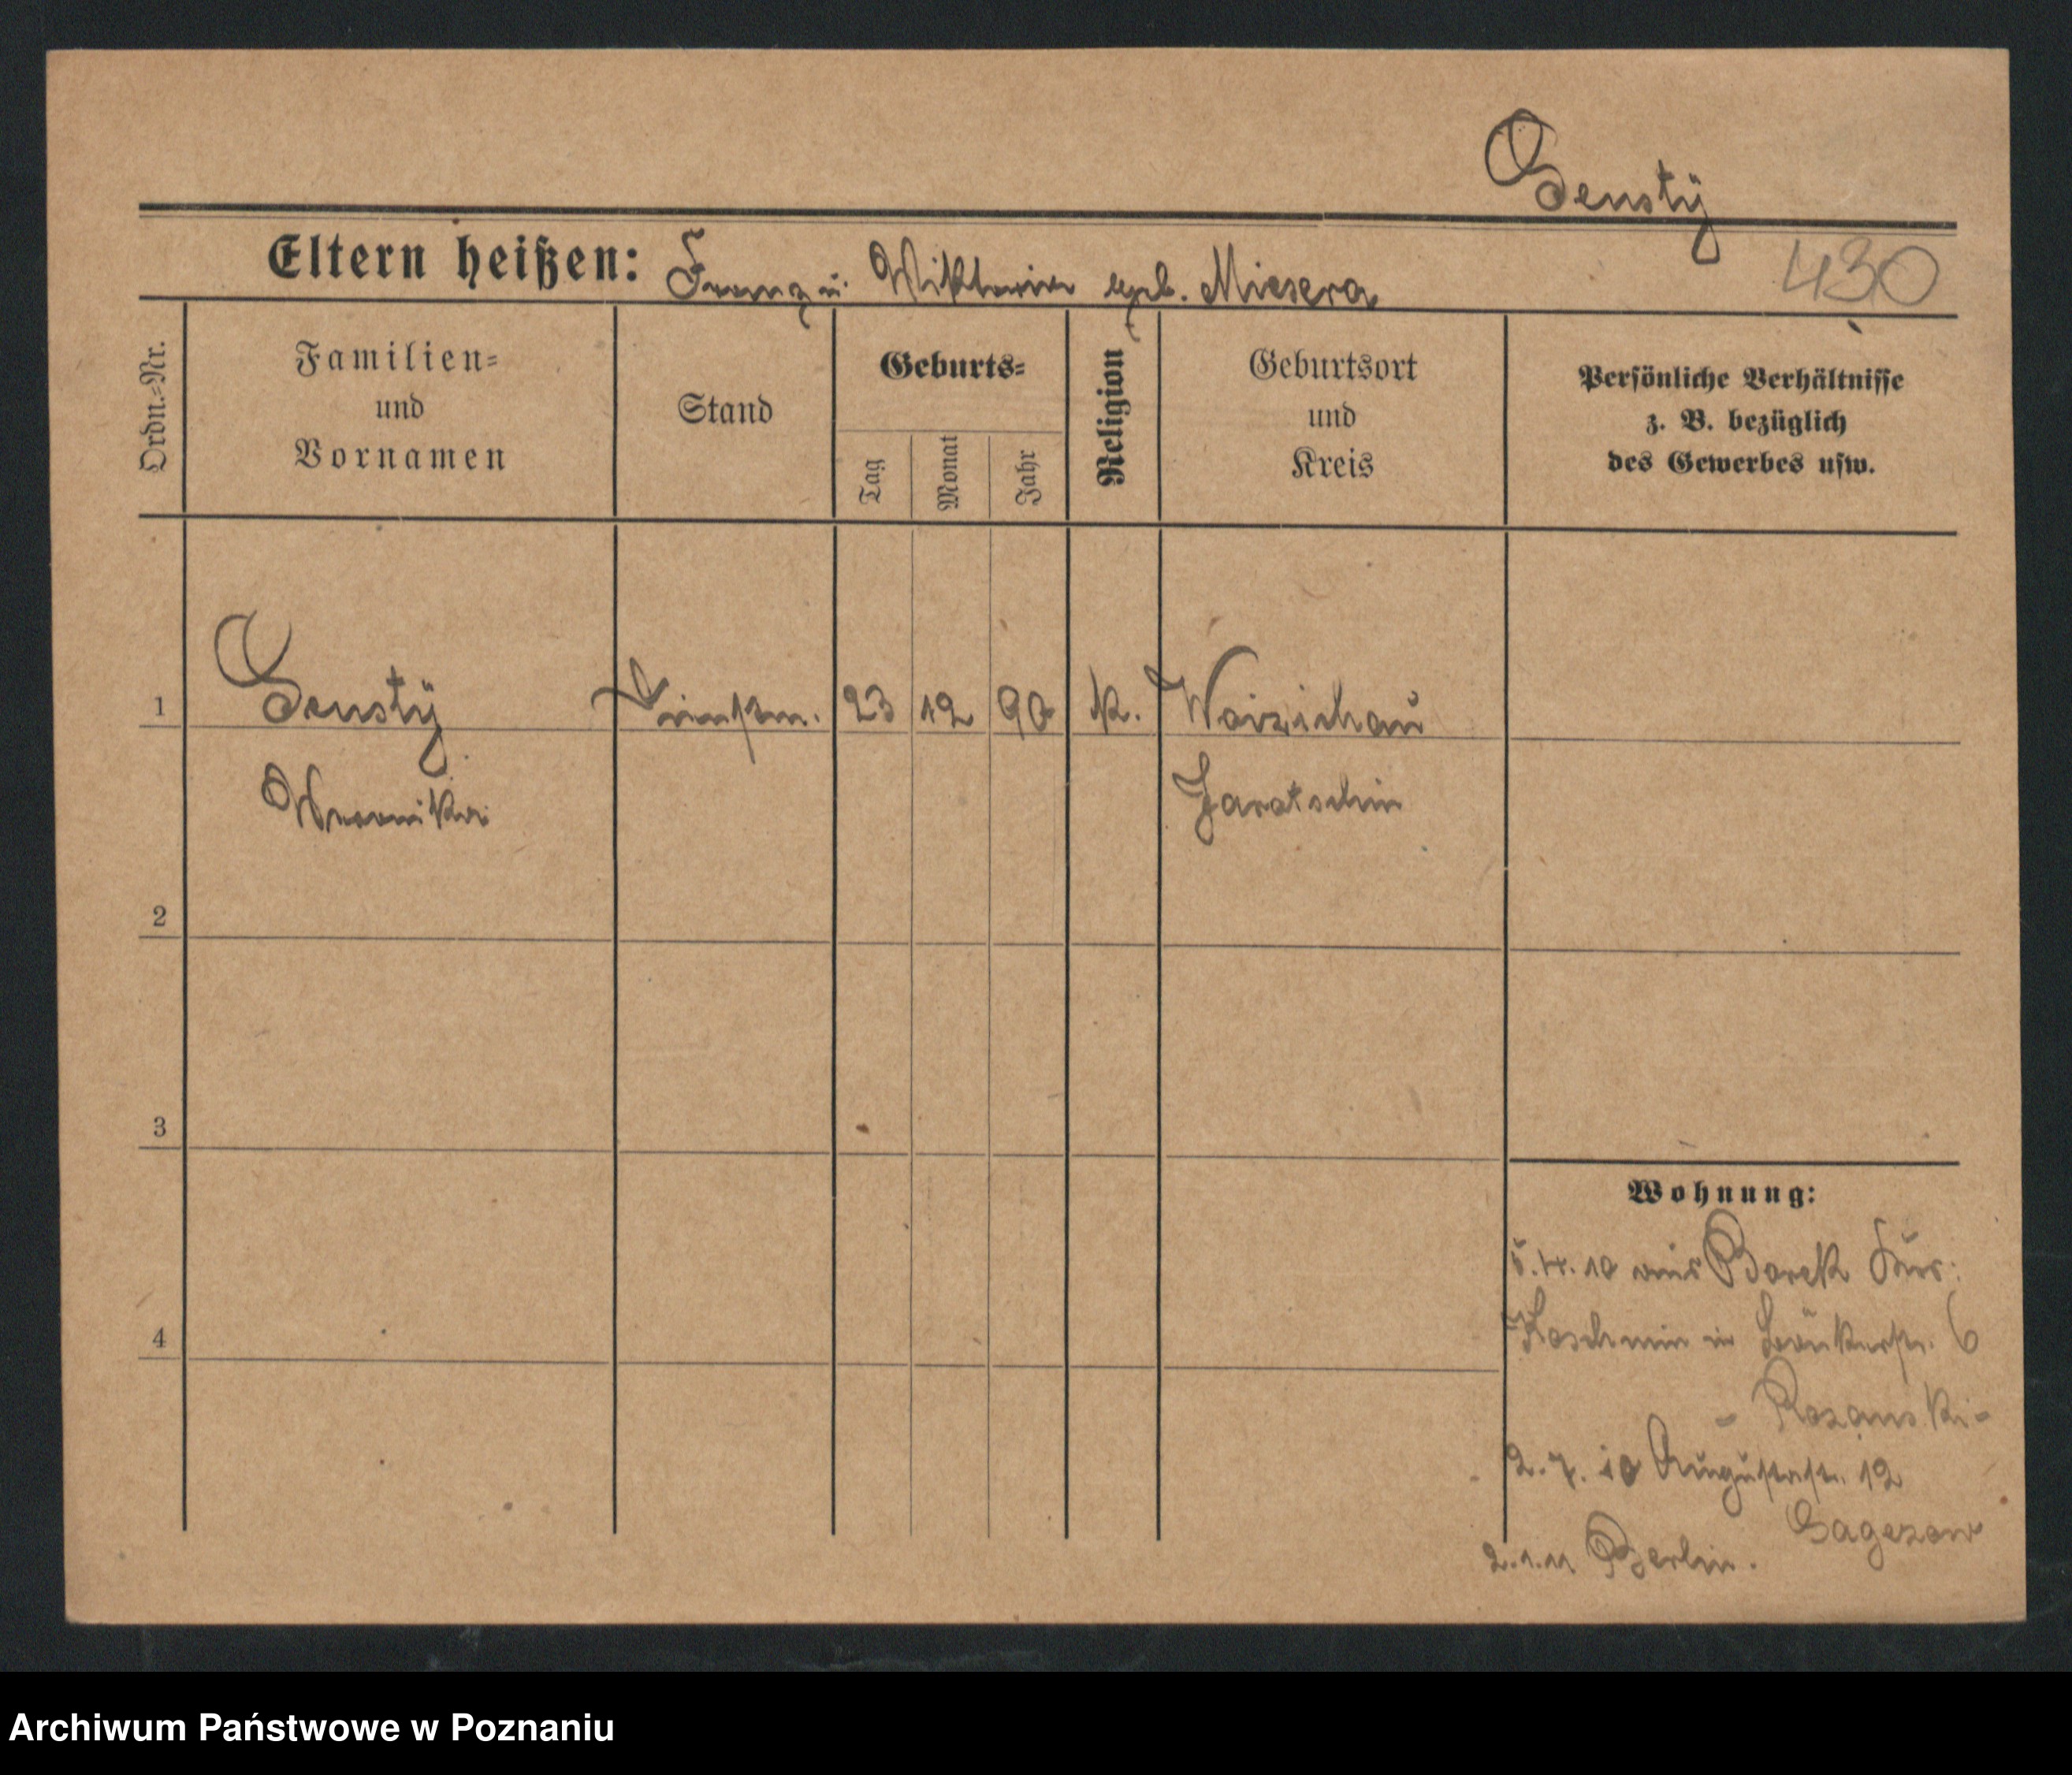 Gensty
430
Eltern heißen: Franz u. Wiktoria geb. Miesera
Ordn.-Nr.
Familien-
und
Vornamen
Stand
Geburts-
Tag
Monat
Jahr
Religion
Geburtsort
und
Kreis
Persönliche Verhältnisse
z. B. bezüglich
des Gewerbes usw.
1 Gensty 23 12 90 K.
Weronika Jarotschin
2
3
4
Wohnung:
5.4.10 aus Borek
Koschmin in 6
- Rozanski -
2.7.10 Augustastr. 12
2.1.11 Berlin.
Archiwum Państwowe w Poznaniu